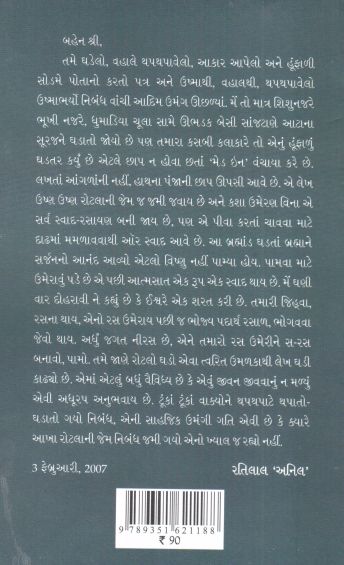 બહેન શ્રી,
તમે ઘડેલો, વહાલે થપથપાવેલો, આકાર આપેલો અને હૂંફાળી
સોડમે પોતાનો કરતો પત્ર અને ઉષ્માથી, વહાલથી, થપથપાવેલો
ઉષ્માભર્યો નિબંધ વાંચી આદિમ ઉમંગ ઊછળ્યાં. મેં તો માત્ર શિશુનજરે
ભૂખી નજરે, ધુમાડિયા ચૂલા સામે ઊભડક બેસી સાંજટાણે આટાના
સૂરજને ઘડાતો જોયો છે પણ તમારા કસબી કલાકારે તો એનું હૂંફાળું
ઘડતર કર્યું છે એટલે છાપ ન હોવા છતાં ‘મેડ ઇન’ વંચાયા કરે છે.
લખતાં આંગળાંની નહીં, હાથના પંજાની છાપ ઊપસી આવે છે. એ લેખ
ઉષ્ણ ઉષ્ણ રોટલાની જેમ જ જમી જવાય છે અને કશા ઉમેરણ વિના એ
સર્વ સ્વાદ-રસાયણ બની જાય છે, પણ એ પીવા કરતાં ચાવવા માટે
દાઢમાં મમળાવવાથી ઓર સ્વાદ આવે છે. આ બ્રહ્માંડ ઘડતાં બ્રહ્માને
સર્જનનો આનંદ આવ્યો એટલો વિષ્ણુ નહીં પામ્યા હોય. પામવા માટે
ઉમેરાવું પડે છે એ પછી આત્મસાત એક રૂપ એક સ્વાદ થાય છે. મેં ઘણી
વાર દોહરાવી ને કહ્યું છે કે ઈશ્વરે એક શરત કરી છે. તમારી જિહ્વા,
રસના થાય, એનો રસ ઉમેરાય પછી જ ભોજ્ય પદાર્થ રસાળ, ભોગવવા
જેવો થાય. અર્ધું જગત નીરસ છે, એને તમારો રસ ઉમેરીને સ-રસ
બનાવો, પામો. તમે જાણે રોટલો ઘડો એવા ત્વરિત ઉમળકાથી લેખ ઘડી
કાઢ્યો છે. એમાં એટલું બધું વૈવિધ્ય છે કે એવું જીવન જીવવાનું ન મળ્યું
એવી અધૂરપ અનુભવાય છે. ટૂંકાં ટૂંકાં વાક્યોને થપથપાટે થપાતો-
ઘડાતો ગયો નિબંધ, એની સાહજિક ઉમંગી ગતિ એવી છે કે ક્યારે
આખા રોટલાની જેમ નિબંધ જમી ગયો એનો ખ્યાલ જ રહ્યો નહીં.
3 ફેબ્રુઆરી, 2007 રતિલાલ ‘અનિલ’
9 789351 621188
₹ 90